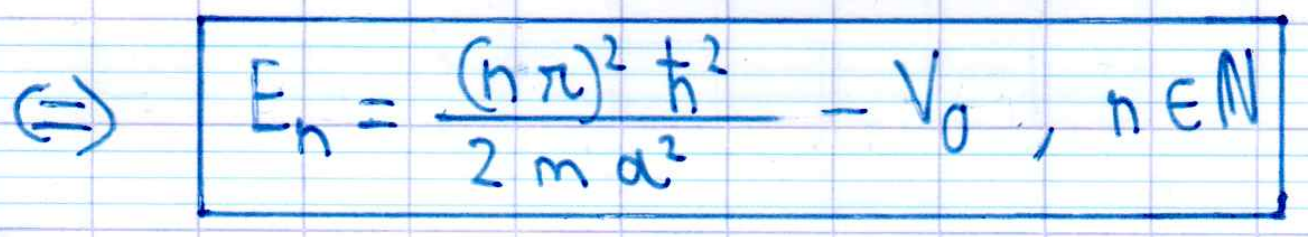 ⇔ Eₙ = (nπ)² ħ² / 2 m a² − V₀ , n ∈ ℕ